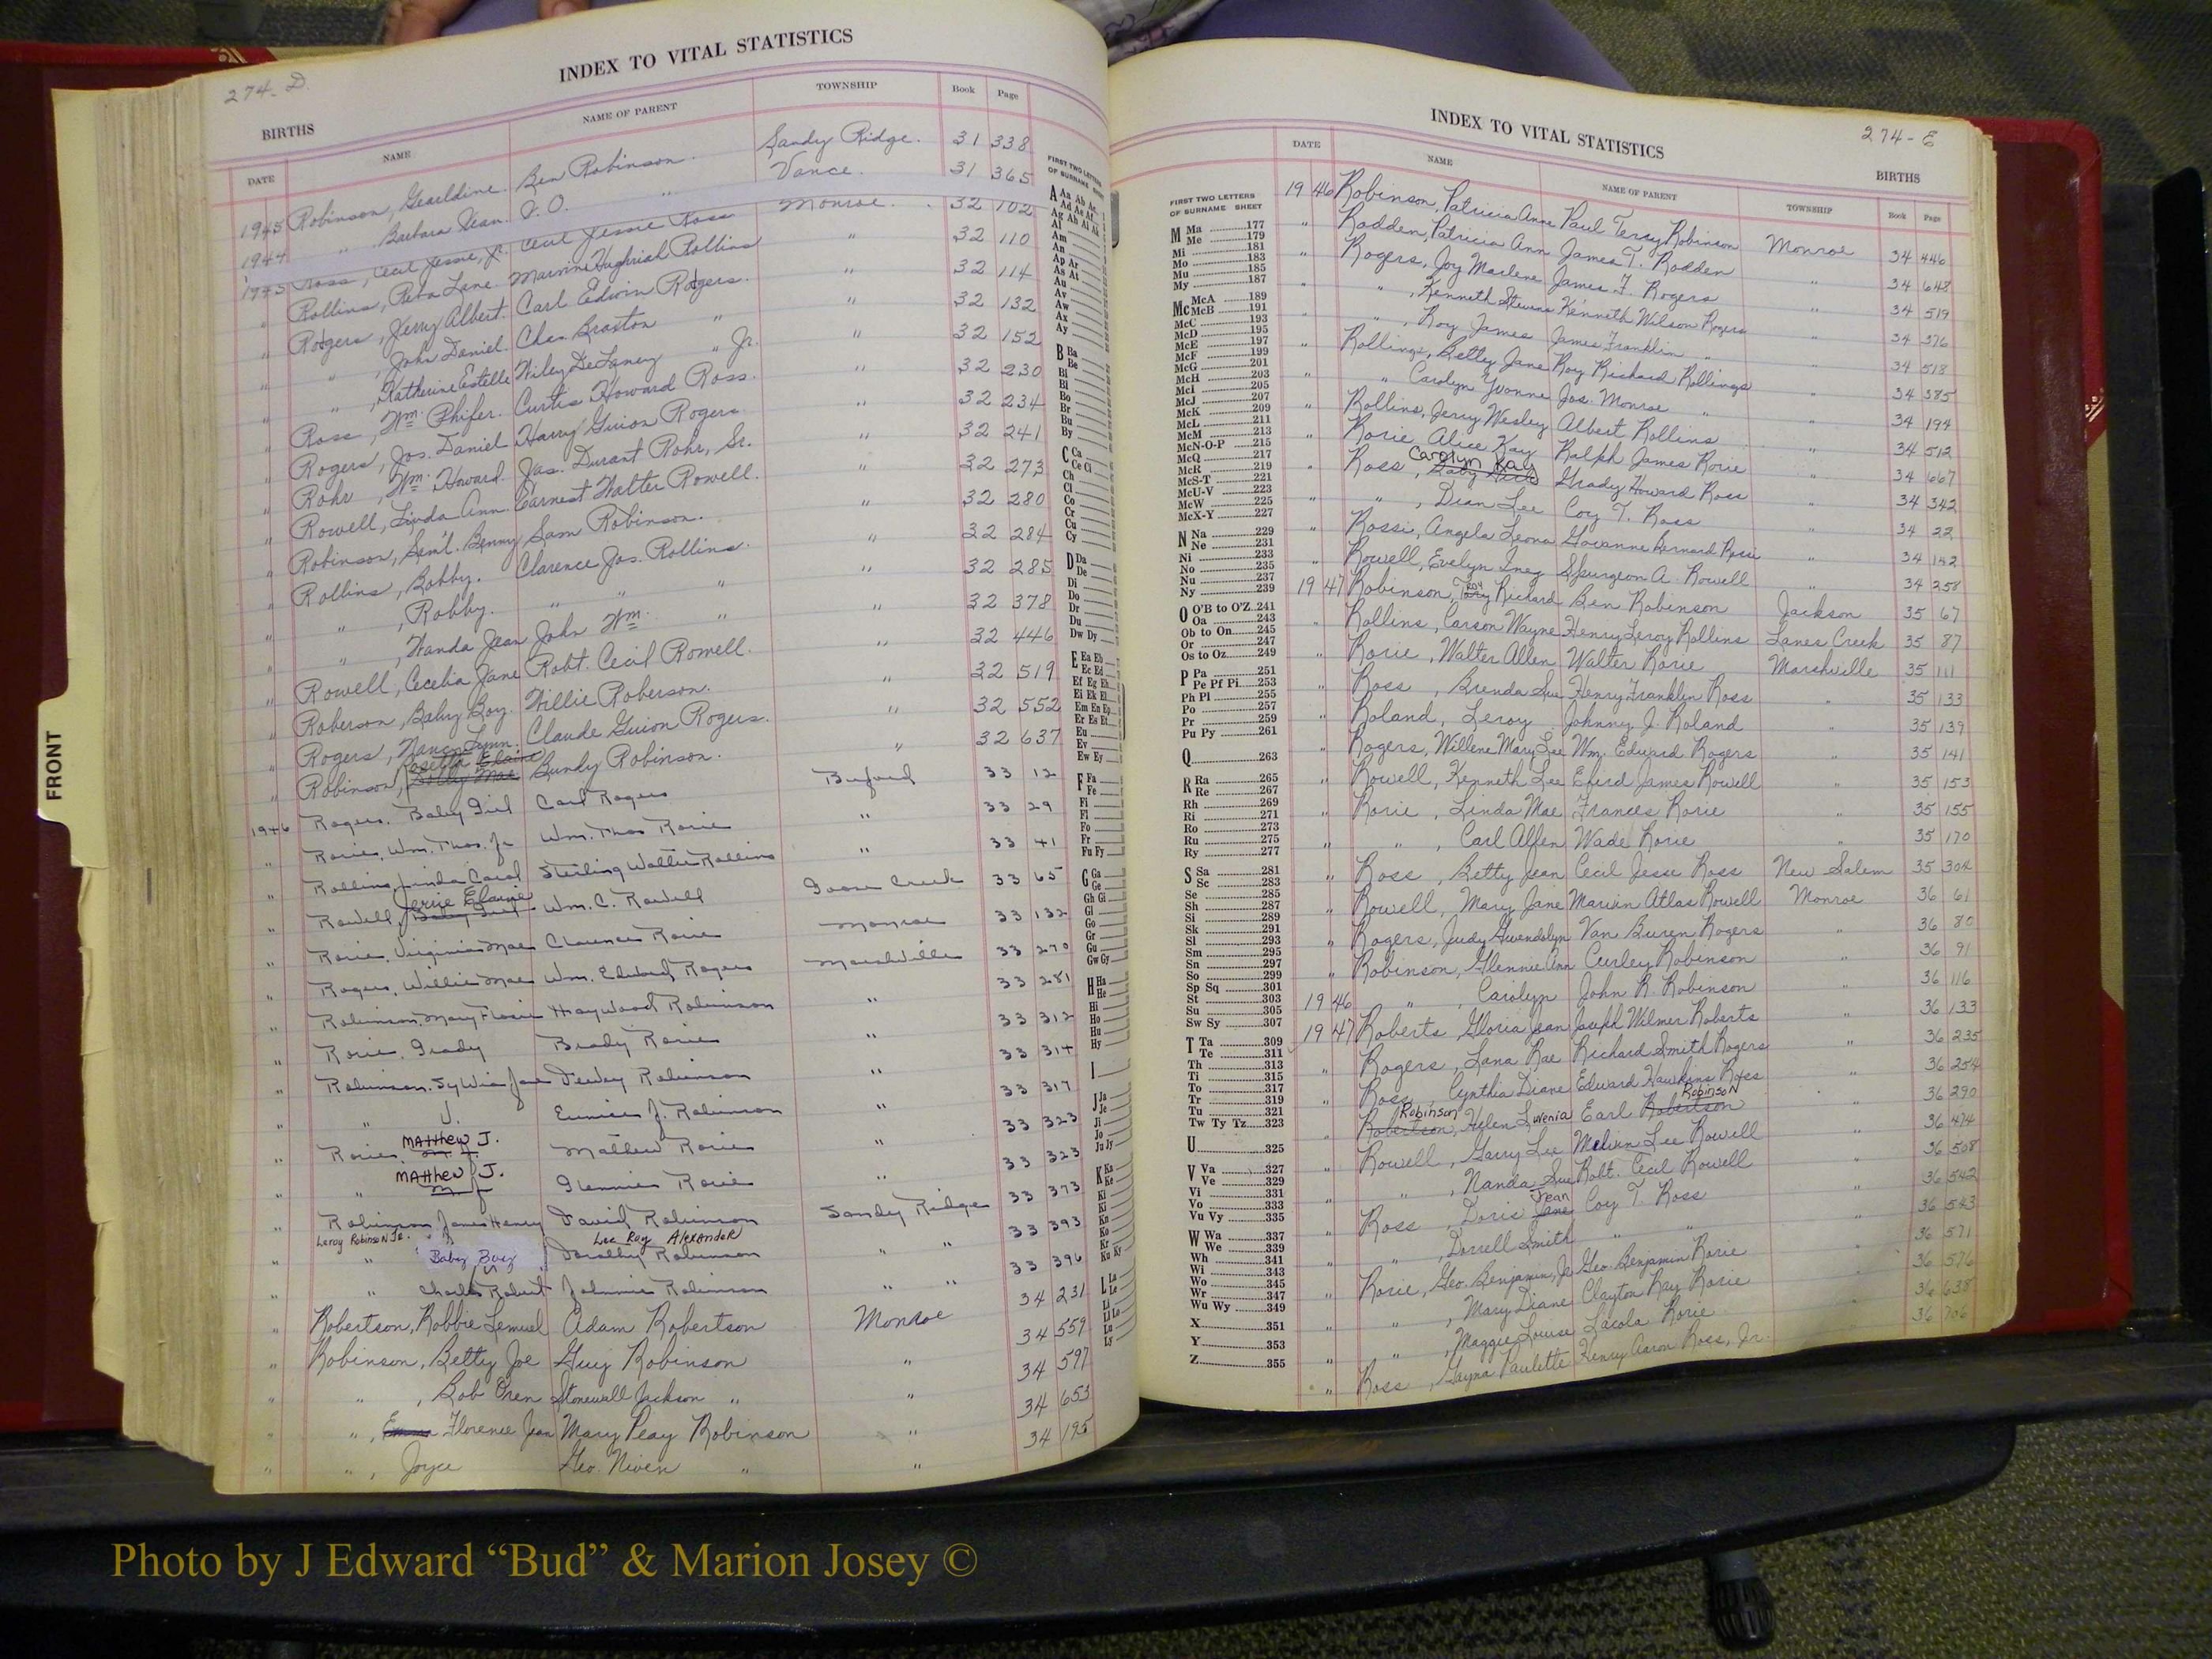 274-D.
INDEX TO VITAL STATISTICS
BIRTHS
DATE NAME NAME OF PARENT TOWNSHIP Book Page
1945 Robinson, Gearldine. Ben Robinson. Sandy Ridge. 31 338
1944 " Barbara Jean. V.O. " Vance. 31 365
1945 Ross, Cecil Jessie, Jr. Cecil Jessie Ross Monroe. 32 102
" Rollins, Reba Lane. Marvine Hughrial Rollins " 32 110
" Rogers, Jerry Albert. Carl Edwin Rogers. " 32 114
" " , John Daniel. Chas. Braxton " " 32 132
" " , Katherine Estelle Wiley DeLaney " Jr. " 32 152
" Ross, Wm. Phifer. Curtis Howard Ross. " 32 230
" Rogers, Jos. Daniel Harry Guion Rogers. " 32 234
" Rohr, Wm. Howard. Jas. Durant Rohr, Sr. " 32 241
" Rowell, Linda Ann. Earnest Walter Rowell. " 32 273
" Robinson, Sam'l. Benny Sam Robinson. " 32 280
" Rollins, Bobby. Clarence Jos. Rollins. " 32 284
" " , Robby. " " " " 32 285
" " , Wanda Jean John Wm. " " 32 378
" Rowell, Cecelia Jane Robt. Cecil Rowell. " 32 446
" Roberson, Baby Boy. Willie Roberson. " 32 519
" Rogers, Nancy Lynn. Claude Guion Rogers. " 32 552
" Robinson, Rosetta Elaine Dolly Mae Bundy Robinson. " 32 637
1946 Rogers, Baby Girl Carl Rogers Buford 33 12
" Rorie, Wm. Thos. Jr Wm. Thos Rorie " 33 29
" Rollins, Linda Carol Sterling Walter Rollins " 33 41
" Rowell, Jerrie Elaine Baby Girl Wm. C. Rowell Goose Creek 33 65
" Rorie, Virginia Mae Clarence Rorie Monroe 33 132
" Rogers, Willie Mae Wm. Edward Rogers Marshville 33 270
" Robinson, Mary Flosie Haywood Robinson " 33 281
" Rorie, Grady Brady Rorie " 33 312
" Robinson, Sylvia Jane Dewey Robinson " 33 314
" " J. Eunice J. Robinson " 33 317
" Rorie, Matthew J. M. J. Mathew Rorie " 33 323
" " Matthew J. Glennie Rorie " 33 323
" Robinson, James Henry David Robinson Sandy Ridge 33 373
Leroy Robinson Jr. Lee Ray Alexander
" " Baby Boy Dorothy Robinson " " 33 393
" " Charles Robert Johnnie Robinson " " 33 396
" Robertson, Robbie Lemuel Adam Robertson Monroe 34 231
" Robinson, Betty Joe Guy Robinson " 34 559
" " , Bob Oren Stonewall Jackson " " 34 597
" " , Emma Florence Jean Mary Peay Robinson " 34 653
" " , Joyce Geo. Niven " " 34 195
FRONT
FIRST TWO LETTERS
OF SURNAME
A Aa Ab Ac
Ad Ae Af
Ag Ah Ai Ak
Al
Am
An
Ap Ar
As At
Au
Av
Aw
Ax
Ay
B Ba
Be
Bi
Bl
Bo
Br
Bu
By
C Ca
Ce Ci
Ch
Cl
Co
Cr
Cu
Cy
D Da
De
Di
Do
Dr
Du
Dw Dy
E Ea Eb
Ec Ed
Ef Eg Eh
Ei Ek El
Em En Ep
Er Es Et
Eu
Ev
Ew Ey
F Fa
Fe
Fi
Fl
Fo
Fr
Fu Fy
G Ga
Ge
Gh Gi
Gl
Go
Gr
Gu
Gw Gy
H Ha
He
Hi
Ho
Hu
Hy
I
J Ja
Je
Ji
Jo
Ju Jy
K Ka
Ke
Ki
Kl
Kn
Ko
Kr
Ku Ky
L La
Le
Li
Ll Lo
Lu
Ly
INDEX TO VITAL STATISTICS
274-E
BIRTHS
DATE NAME NAME OF PARENT TOWNSHIP Book Page
FIRST TWO LETTERS
OF SURNAME SHEET
M Ma 177
Me 179
Mi 181
Mo 183
Mu 185
My 187
Mc McA 189
McB 191
McC 193
McD 195
McE 197
McF 199
McG 201
McH 203
McI 205
McJ 207
McK 209
McL 211
McM 213
McN-O-P 215
McQ 217
McR 219
McS-T 221
McU-V 223
McW 225
McX-Y 227
N Na 229
Ne 231
Ni 233
No 235
Nu 237
Ny 239
O O'B to O'Z 241
Oa 243
Ob to On 245
Or 247
Os to Oz 249
P Pa 251
Pe Pf Pi 253
Ph Pl 255
Po 257
Pr 259
Pu Py 261
Q 263
R Ra 265
Re 267
Rh 269
Ri 271
Ro 273
Ru 275
Ry 277
S Sa 281
Sc 283
Se 285
Sh 287
Si 289
Sk 291
Sl 293
Sm 295
Sn 297
So 299
Sp Sq 301
St 303
Su 305
Sw Sy 307
T Ta 309
Te 311
Th 313
Ti 315
To 317
Tr 319
Tu 321
Tw Ty Tz 323
U 325
V Va 327
Ve 329
Vi 331
Vo 333
Vu Vy 335
W Wa 337
We 339
Wh 341
Wi 343
Wo 345
Wr 347
Wu Wy 349
X 351
Y 353
Z 355
1946 Robinson, Patricia Anne Paul Terry Robinson Monroe 34 446
" Rodden, Patricia Ann James T. Rodden " 34 648
" Rogers, Joy Marlene James F. Rogers " 34 519
" " , Kenneth Stevens Kenneth Wilson Rogers " 34 376
" " , Roy James James Franklin " " 34 518
" Rollings, Betty Jane Roy Richard Rollings " 34 385
" " Carolyn Yvonne Jas. Monroe " " 34 194
" Rollins, Jerry Wesley Albert Rollins " 34 512
" Rorie Alice Kay Ralph James Rorie " 34 667
" Ross, Carolyn Kay Baby Girl Grady Howard Ross " 34 342
" " , Dean Lee Coy T. Ross " 34 22
" Rossi, Angela Leona Giovanne Bernard Rossi " 34 142
" Rowell, Evelyn Inez Spurgeon A. Rowell " 34 258
1947 Robinson, Roy Richard Ben Robinson Jackson 35 67
" Rollins, Carson Wayne Henry Leroy Rollins Lanes Creek 35 87
" Rorie, Walter Allen Walter Rorie Marshville 35 111
" Ross, Brenda Sue Henry Franklin Ross " 35 133
" Roland, Leroy Johnny J. Roland " 35 139
" Rogers, Willene Mary Lee Wm. Edward Rogers " 35 141
" Rowell, Kenneth Lee Eferd James Rowell " 35 153
" Rorie, Linda Mae Frances Rorie " 35 155
" " , Carl Alfen Wade Rorie " 35 170
" Ross, Betty Jean Cecil Jesse Ross New Salem 35 302
" Rowell, Mary Jane Marvin Atlas Rowell Monroe 36 61
" Rogers, Judy Gwendolyn Van Buren Rogers " 36 80
" Robinson, Glennie Ann Curley Robinson " 36 91
1946 " , Carolyn John R. Robinson " 36 116
1947 Roberts, Gloria Jean Joseph Wilmer Roberts " 36 133
" Rogers, Lana Rae Richard Smith Rogers " 36 235
" Ross, Cynthia Diane Edward Hawkins Ross " 36 254
" Robinson Robertson, Helen Luvenia Earl Robertson Robinson " 36 290
" Rowell, Garry Lee Melvin Lee Rowell " 36 474
" " , Nanda Sue Robt. Cecil Rowell " 36 508
" Ross, Doris Jean Jane Coy T. Ross " 36 542
" " , Dorrell Smith " " " 36 543
" Rorie, Geo. Benjamin, Jr Geo. Benjamin Rorie " 36 571
" " , Mary Diane Clayton Ray Rorie " 36 576
" " , Maggie Louise Lacola Rorie " 36 638
" Ross, Gayna Paulette Henry Aaron Ross, Jr. 36 706
Photo by J Edward “Bud” & Marion Josey ©